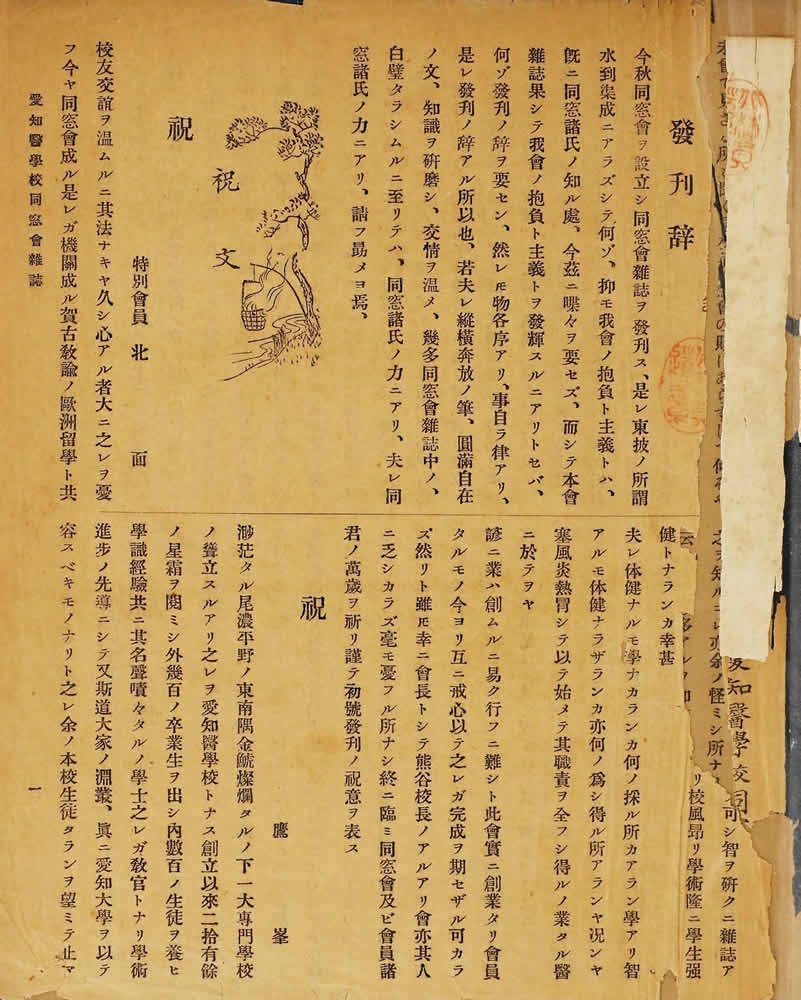 發刊辞
今秋同窓會ヲ設立シ同窓會雜誌ヲ發刊ス、是レ東披ノ所謂
水到渠成ニアラズシテ何ゾ、抑モ我會ノ抱負ト主義トハ、
既ニ同窓諸氏ノ知ル處、今茲ニ喋々ヲ要セズ、而シテ本會
雜誌果シテ我會ノ抱負ト主義トヲ發輝スルニアリトセバ、
何ゾ發刋ノ辞ヲ要セン、然レ𪜈物各序アリ、事自ラ律アリ、
是レ發刋ノ辞アル所以也、若夫レ縱橫奔放ノ筆、圓滿自在
ノ文、知識ヲ硏磨シ、交情ヲ温メ、幾多同窓會雜誌中ノ、
白璧タラシムルニ至リテハ、同窓諸氏ノ力ニアリ、夫レ同
窓諸氏ノ力ニアリ、請フ勗メヨ焉、
祝文
祝
特別會員 北面
校友交誼ヲ温ムルニ其法ナキヤ久シ心アル者大ニ之レヲ憂
フ今ヤ同窓會成ル是レガ機關成ル賀古敎諭ノ歐洲留學ト共
愛知醫學校同窓會雜誌
愛知醫學校同
リ校風昂リ學術隆ニ學生强
健トナランカ幸甚
夫レ体健ナルモ學ナカランカ何ノ採ル所カアラン學アリ智
アルモ体健ナラザランカ亦何ノ爲シ得ル所アランヤ况ンヤ
塞風炎熱冒シテ以テ始メテ其職責ヲ全フシ得ルノ業タル醫
ニ於テヲヤ
諺ニ業ハ創ムルニ易ク行フニ難シト此會實ニ創業タリ會員
タルモノ今ヨリ互ニ戒心以テ之レガ完成ヲ期セザル可カラ
ズ然リト雖𪜈幸ニ會長トシテ熊谷校長ノアルアリ會亦其人
ニ乏シカラズ毫モ憂フル所ナシ終ニ臨ミ同窓會及ビ會員諸
君ノ萬歲ヲ祈リ謹テ初號發刋ノ祝意ヲ表ス
祝
鷹峯
渺茫タル尾濃平野ノ東南隅金鯱燦爛タルノ下一大專門學校
ノ聳立スルアリ之レヲ愛知醫學校トナス創立以來二拾有餘
ノ星霜ヲ閱ミシ外幾百ノ卒業生ヲ出シ内數百ノ生徒ヲ養ヒ
學識經驗共ニ其名聲嘖々タルノ學士之レガ敎官トナリ學術
進步ノ先導ニシテ又斯道大家ノ淵叢、眞ニ愛知大學ヲ以テ
容スベキモノナリト之レ余ノ本校生徒タランヲ望ミテ止マ
一